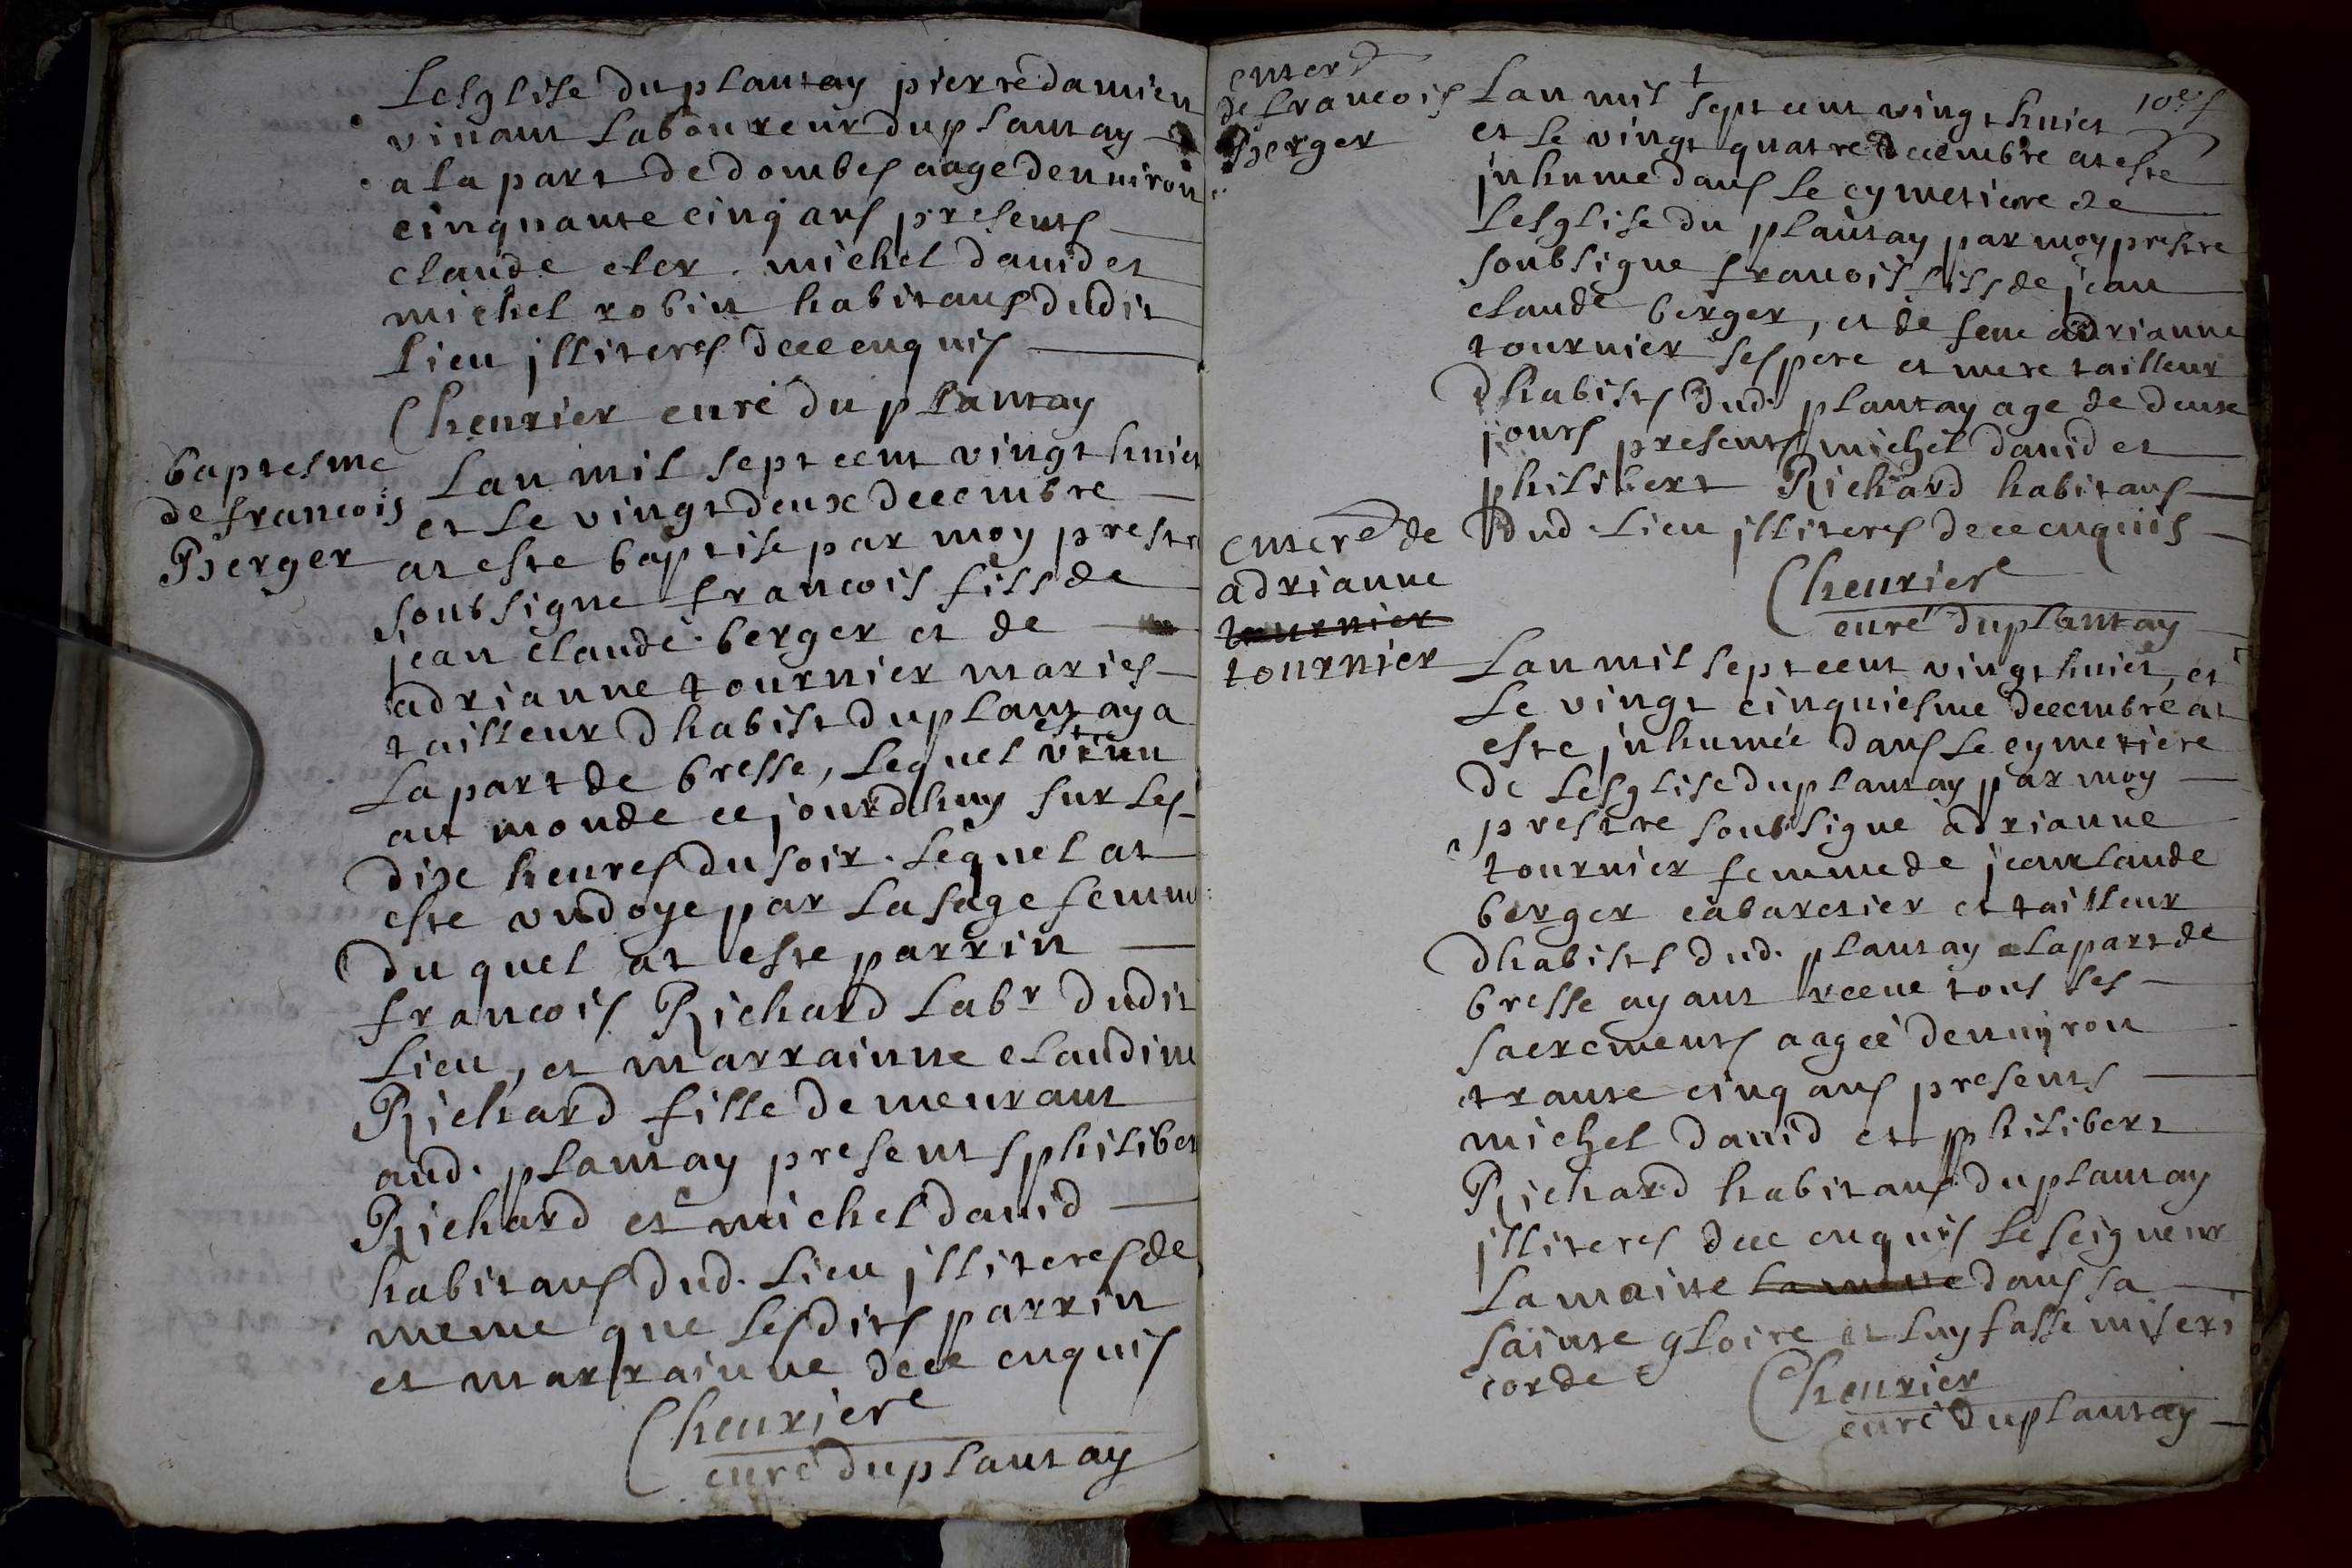 Lesglise du plantay pierre damien
vivant laboureur du plantay
a la part de dombes aage denuiron
cinquante cinq ans presents
claude cler . michel dauid et
michel robin habitans dudit
lieu jlliteres de ce enquis
Cheurier curé du plantay
baptesme
de francois
Berger
Lan mil sept cent vingt huict
et le vingt deux decembre
at este baptise par moy prestre
soubsigne francois fils de
jean claude berger et de
adrianne tournier maries
tailleur dhabist du plantay a
la part de bresse, lequel est venu
au monde ce jourdhuy sur les
dix heures du soir . lequel at
este vndoye par la sage femme
du quel at este parrin
francois Richard labr dudit
lieu, et marrainne claudine
Richard fille demeurant
aud. plantay presents philibert
Richard et michel dauid
habitans dud. lieu jlliteres de
meme que lesdits parrin
et marrainne de ce enquis
Cheuriere
curé du plantay
enter
de francois
Berger
Lan mil sept cent vingt huict
et le vingt quatre decembre at este
jnhume dans le cymetiere de
Lesglise du plantay par moy prestre
soubsigne francois fils de jean
claude berger, et de feue adrianne
tournier ses pere et mere tailleur
dhabists dud. plantay age de deux
jours presents michel dauid et
philibert Richard habitans
dud. lieu jlliteres de ce enquis
Cheuriere
curé du plantay
enteré de
adrianne
tournier
tournier
Lan mil sept cent vingt huict, et
le vingt cinquiesme decembre at
este jnhumée dans le cymetiere
de Lesglise du plantay par moy
prestre soubsigne adrianne
tournier femme de jean claude
berger cabaretier et tailleur
dhabists dud. plantay a la part de
bresse ayant receue tous les
sacrements agée denuyron
trante cinq ans presents
michel dauid et philibert
Richard habitans du plantay
jlliteres de ce enquis le seigneur
la maine dans sa
sainte gloire et luy fasse miseri
corde
Cheurier
curé du plantay